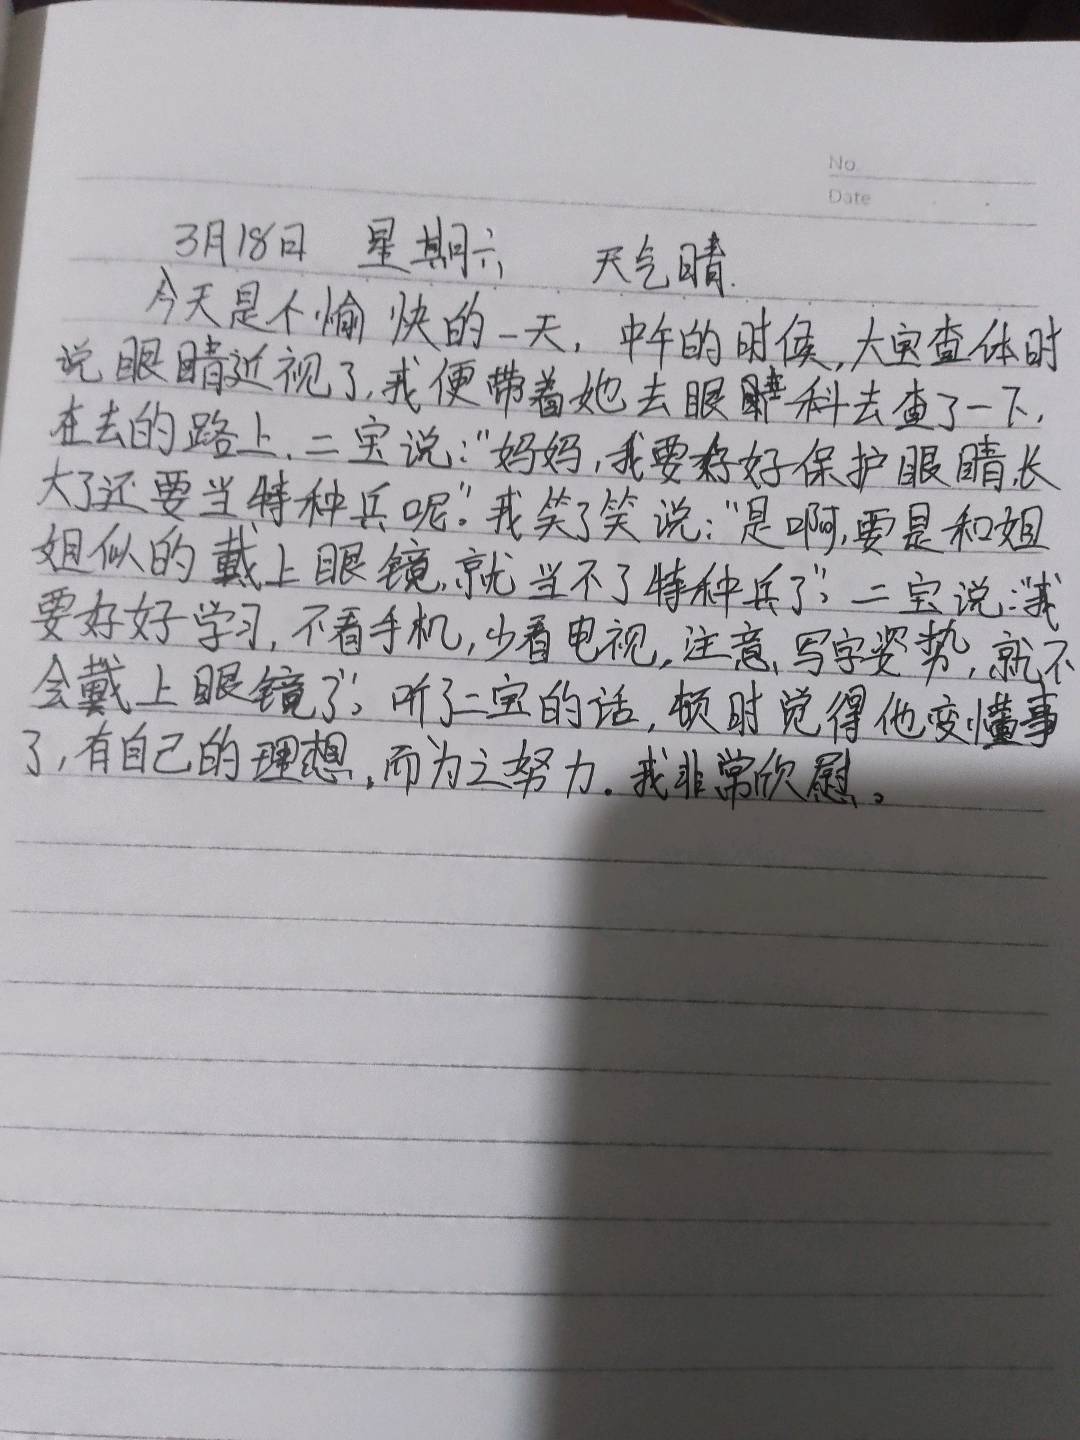 No.
Date
3月18日 星期六 天气晴.
今天是不愉快的一天,中午的时候,大宝查体时
说眼睛近视了,我便带着她去眼睛科去查了一下,
在去的路上,二宝说:"妈妈,我要好好保护眼睛,长
大了还要当特种兵呢"。我笑了笑说:"是啊,要是和姐
姐似的戴上眼镜,就当不了特种兵了",二宝说:"我
要好好学习,不看手机,少看电视,注意、写字姿势,就不
会戴上眼镜了",听了二宝的话,顿时觉得他变懂事
了,有自己的理想,而为之努力.我非常欣慰。